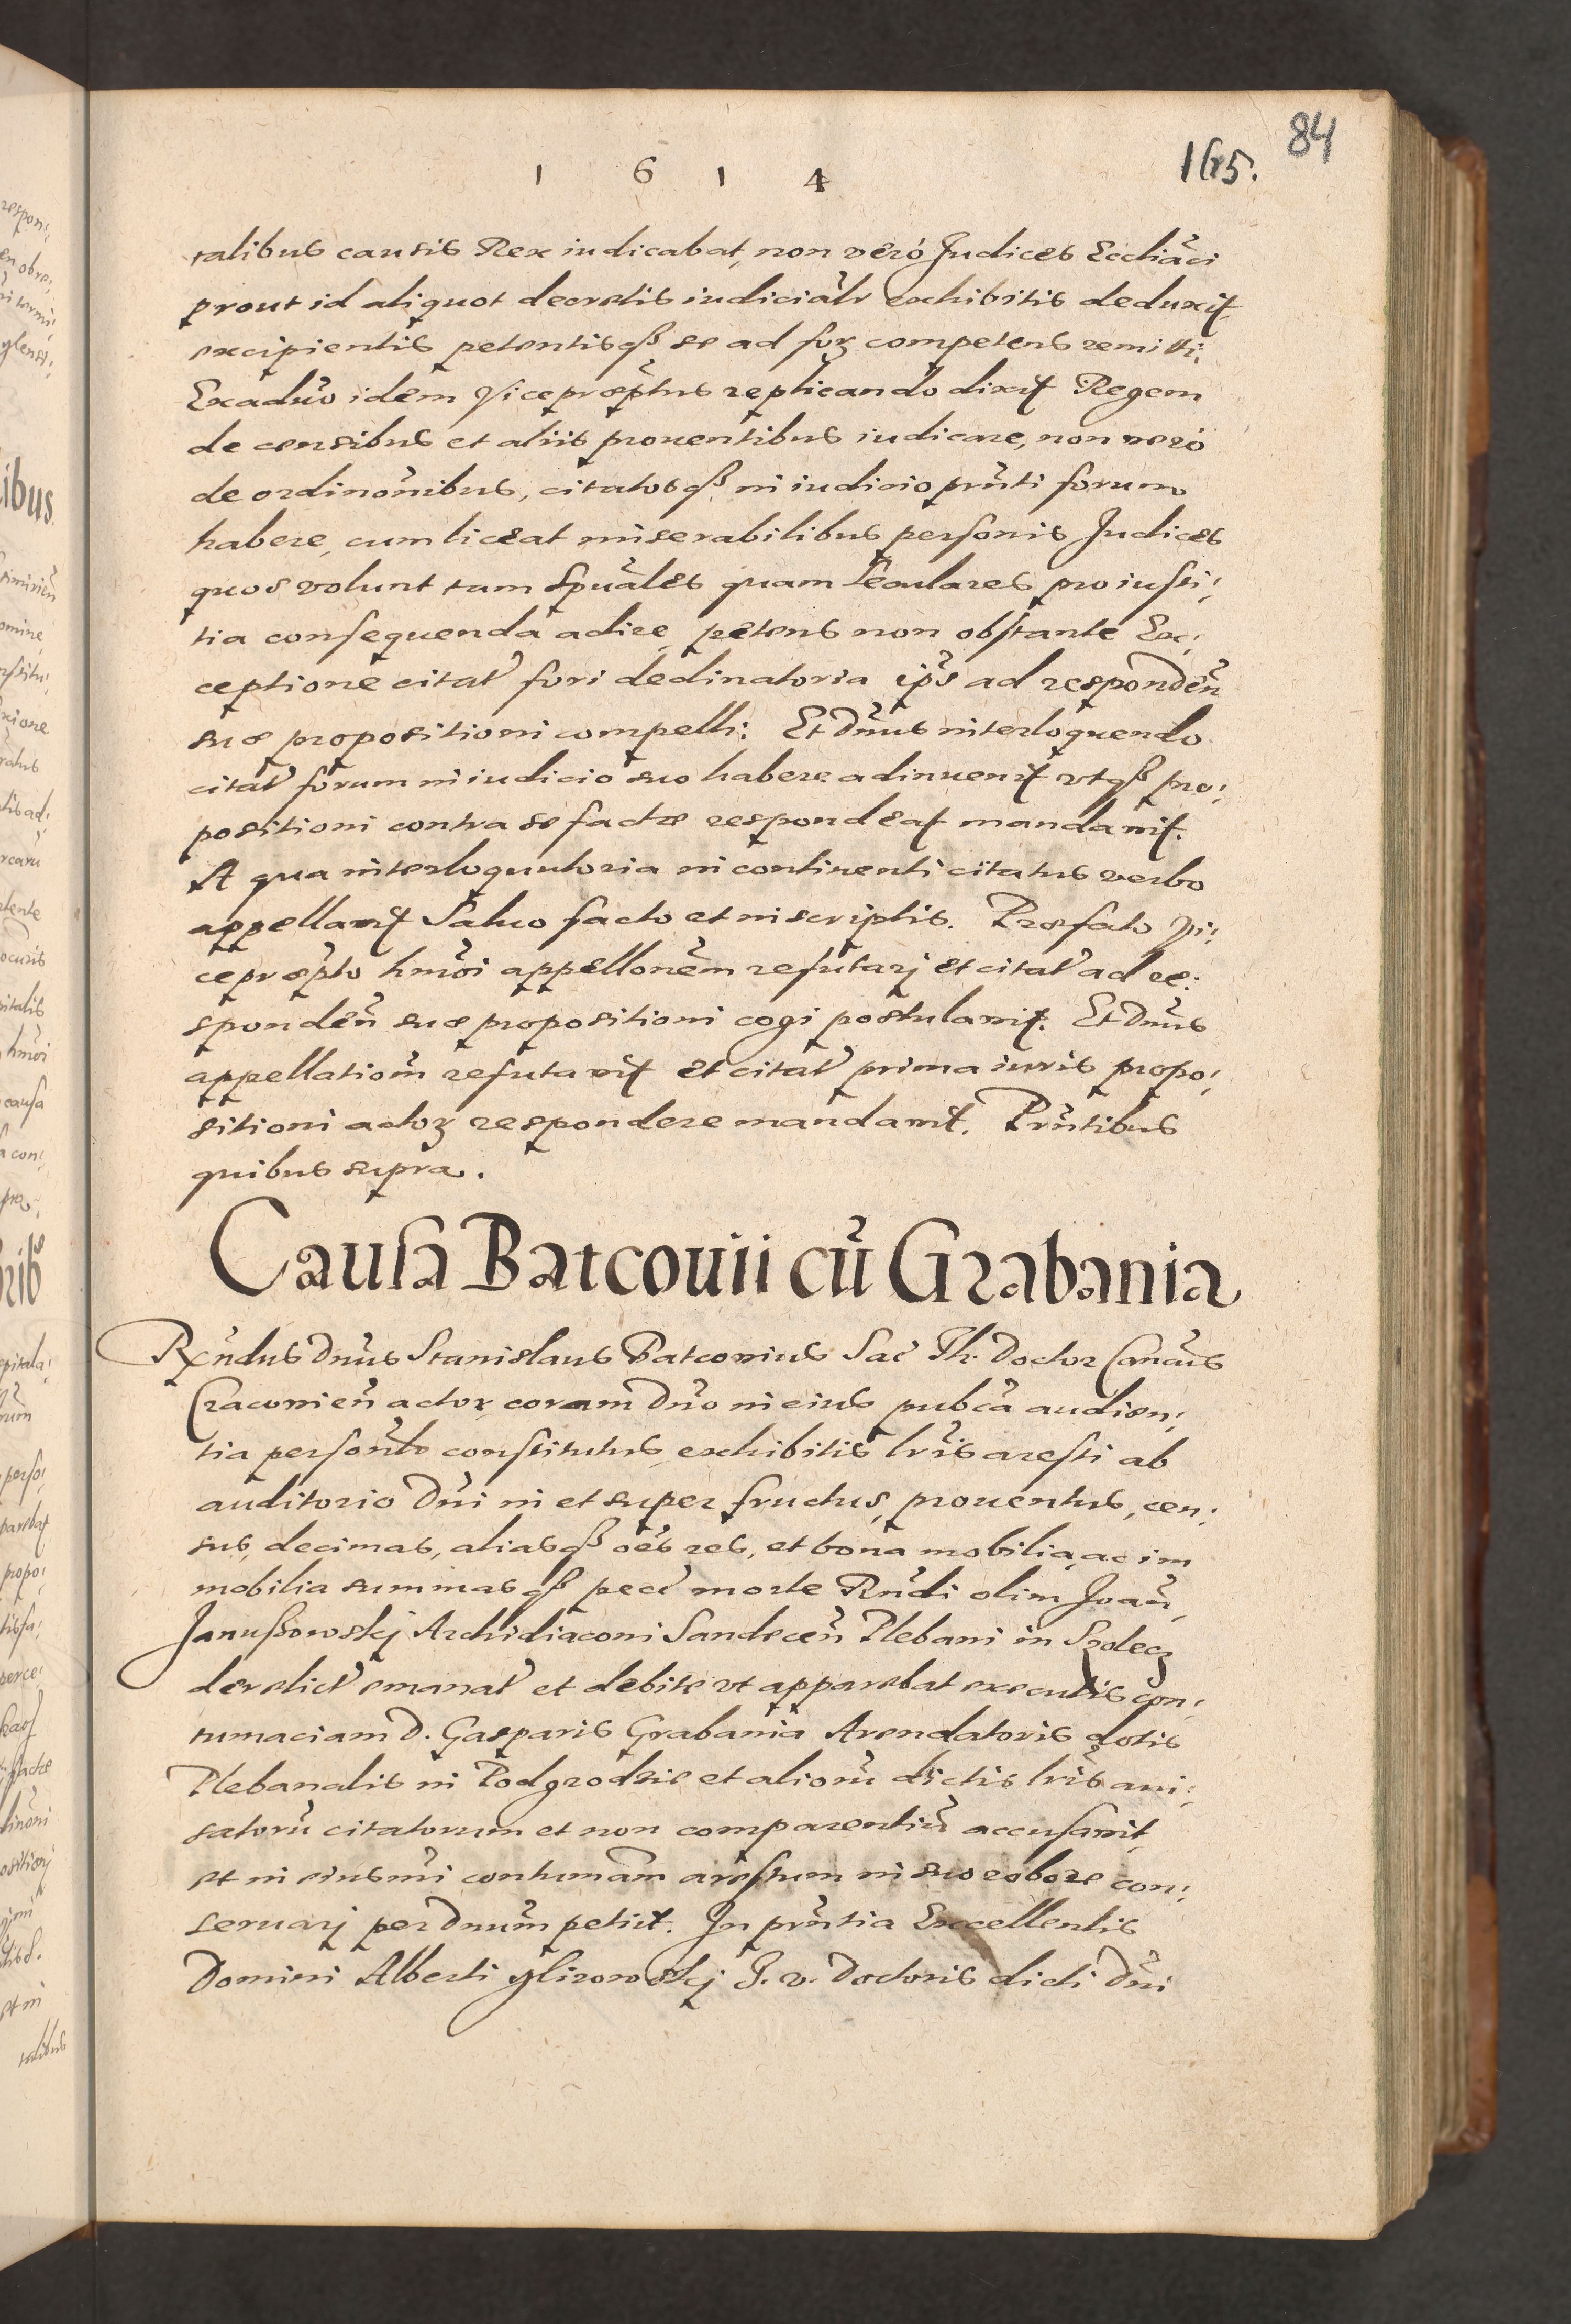 84
1 6 1 4 165.
talibus causis Rex iudicabat, non veró Judices Eccliãci
prout id aliquot decretis iudiciãlr exhibitis deduxit
excipientis petentisqꝫ se ad foꝝ competens remitti.
Exaduõ idem Viceprõptus replicando dixit Regem
de censibus et aliis prouentibus iudicare, non veró
de ordinõnibus, citatosqꝫ in iudicio prñti forum
habere, cum liceat miserabilibus personis Judices
quos volunt tam Spũales quam seculares pro iusti:
tia consequenda adire, petens non obstante Ex:
ceptione citať fori declinatoria ip̃s ad respondeñ
suæ propositioni compelli: Et Dñus interloquendo
citať forum in iudicio suo habere adinuenit vtqꝫ pro:
positioni contra se factæ respondeat mandauit.
A qua interloquutoria in continenti citatus verbo
appellauit Saluo facto et in scriptis. Præfato Vi:
cepræpto hmõi appellonẽm refutarj et citať ad re:
spondeñ suæ propositioni cogi postulauit. Et Dñus
appellatiom̃ refutauit et citať prima iuris propo:
sitioni actoꝝ respondere mandauit. Prñtibus
quibus supra.
Causa Batcouii cũ Grabania
Rx̃ndus Dñus Stanislaus Batcouius Sac̃ Th: Doctor Cancũs
Cracouieñ actor coram Dño in eius pubcã audien:
tia persoñlr constitutus, exhibitis lrĩs aresti ab
auditorio Dñi in et super fructus, prouentus, cen:
sus, decimas, aliasqꝫ oẽs res, et bona mobilia, ac im
mobilia summasqꝫ peč morte Rñdi olim Joañ
Janußowskj Archidiaconi Sandeceñ Plebani in Szolecz
derelict̃ emanať et debite vt apparebat executis con:
tumaciam D. Gasparis Grabania Arendatoris dotis
Plebanalis in Podgrodzie et aliorũ dictis lrĩs aui:
satorũ citatorum et non comparentiũ accusauit,
et in eiusmĩ contumãm arestum in suo robore con:
seruarj per Dnum̃ petiit. In prñtia Excellentis
Domini Alberti Glizowskj J. V. Doctoris dicti Dñi